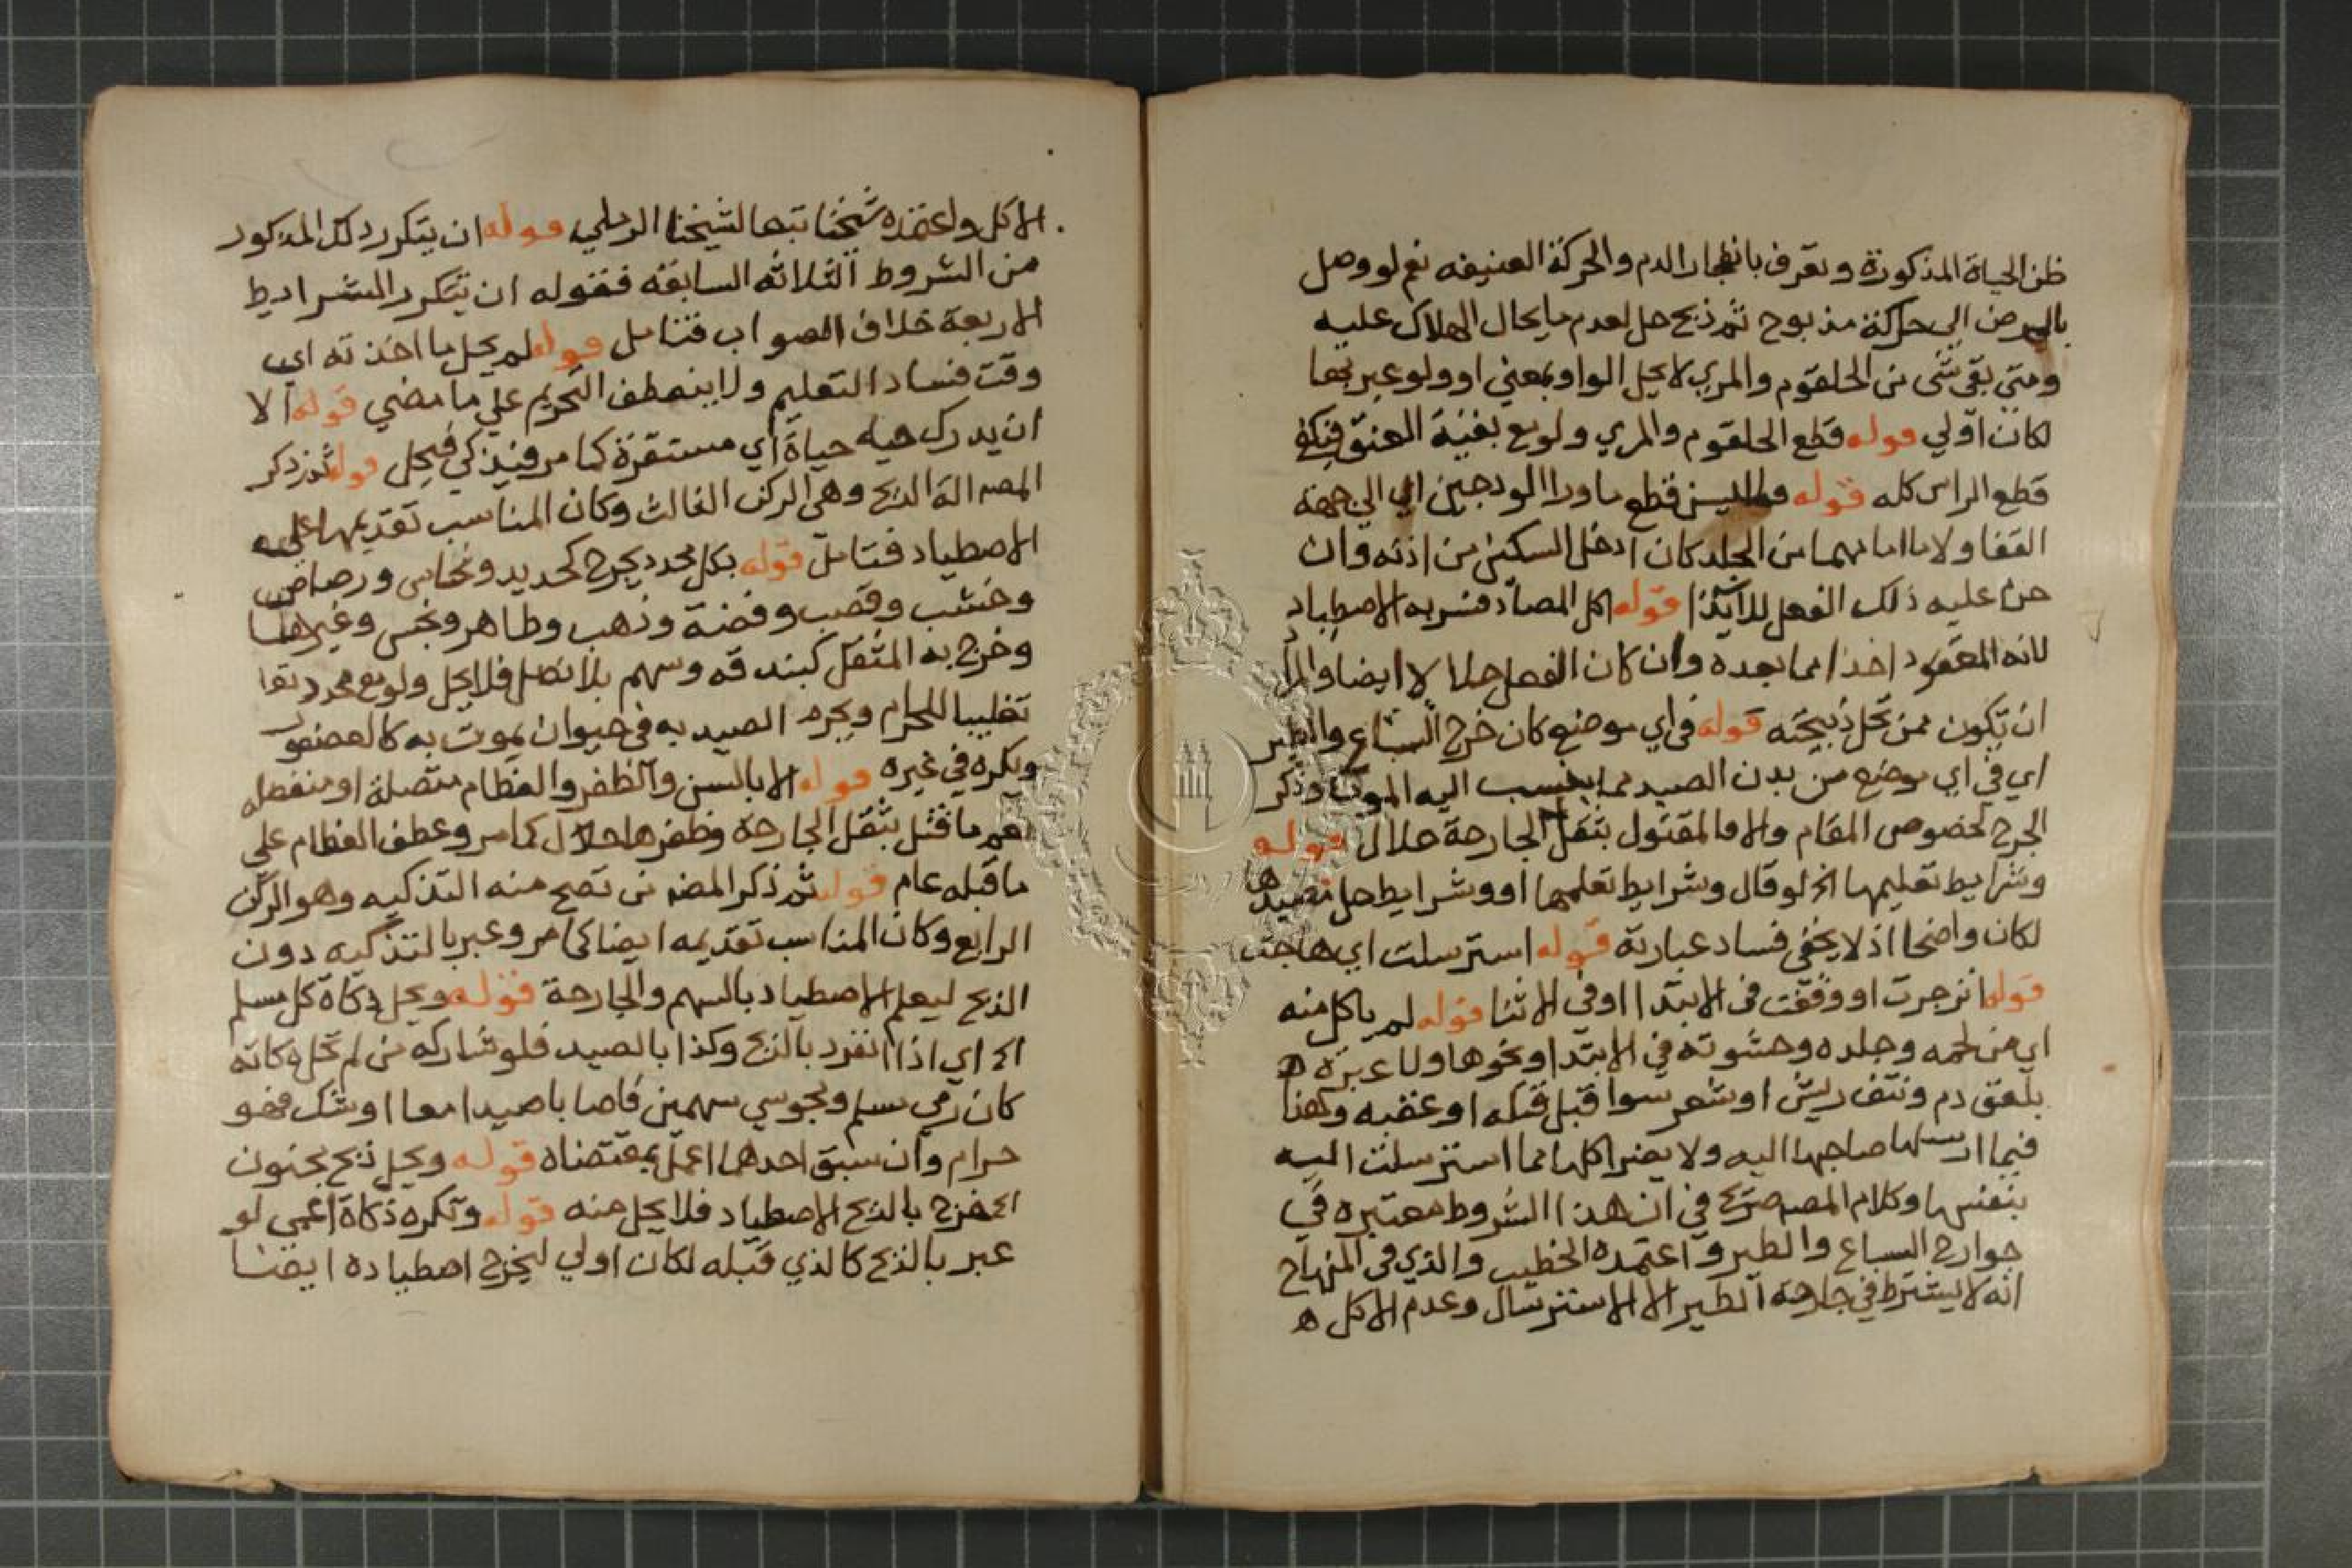 ظن الحياة المذكورة وتعرف بانفجار الدم والحركة العنيفه نعم لو وصل
بالمرض الى حركة مذبوح ثم ذبح حل لعدم ما يحال الهلاك عليه
ومتى بقى شى من الحلقوم والمري لا يحل الواو بمعنى او ولو عبر بها
لكان اولي قوله قطع الحلقوم والمري ولو مع بقية العنق فيكفى
قطع الراس كله قوله قطع ما ورا الودجين اي الي جهة
القفا ولا ما امامهما من الجلد كان ادخل السكين من اذنه وان
حرم عليه ذلك الفعل للايذا قوله اكل المصاد فسر به الاصطياد
لانه المقصود اخذا مما بعده وان كان الفعل حلالا ايضا والمراد
ان يكون ممن تحل ذبيحته قوله في اي موضع كان خرج السباع والطير
اي في اي موضع من بدن الصيد مما ينسب اليه الموت وذكر
الجرح لخصوص المقام والا فالمقتول بثقل الجارحة حلال قوله
وشرايط تعليمها الخ لو قال وشرايط تعلمها او وشرايط حل مصيدها
لكان واضحا اذ لا يخفى فساد عبارته قوله استرسلت اي هاجت
قوله انزجرت او وقفت في الابتدا او في الاثنا قوله لم ياكل منه
اي من لحمه وجلده وحشوته في الابتدا ونحوها ولا عبرة ه
بلعق دم ونتف ريش او شعر سوا قبل قتله او عقبه وهذا
فيما ارسلها صاحبها اليه ولا يضر اكلها مما استرسلت اليه
بنفسها وكلام المصـ صريح في ان هذا الشروط معتبره في
جوارح السباع والطير واعتمده الخطيب والذي في المنهاج
انه لا يشترط في جارحة الطير الا الاسترسال وعدم الاكل ه
الاكل واعتمده شيخنا تبعا لشيخنا الرملي قوله ان يتكرر ذلك المذكور
من الشروط الثلاثه السابقه فقوله ان تتكرر الشرايط
الاربعة خلاف الصواب فتامل قوله لم يحل ما اخذته اي
وقت فساد التعليم ولا ينعطف التحريم علي ما مضي قوله الا
ان يدرك حيه حياة اي مستقرة كما مر فيذكي فيحل قوله ثم ذكر
المصـ الة الذبح وهي الركن الثالث وكان المناسب تقديمها علي
الاصطياد فتامل قوله بكل محدد يجرح كحديد ونحاس ورصاص
وخشب وقصب وفضة وذهب وطاهر ونجس وغيرها
وخرج به المثقل كبندقه وسهم بلا نصل فلا يحل ولو مع محدد
تغليبا للحرام ويحرم الصيد به في حيوان يموت به كالعصفور
ويكره في غيره قوله الا بالسن والظفر والعظام متصلة او منفصله
نعم ما قتل بثقل الجارحة وظفرها حلال كما مر وعطف العظام علي
ما قبله عام قوله ثم ذكر المصـ من تصح منه التذكيه وهو الركن
الرابع وكان المناسب تقديمه ايضا كما مر وعبر بالتذكيه دون
الذبح ليعلم الاصطياد بالسهم والجارحة قوله ويحل ذكاة كل مسلم
الخ اي اذا انفرد بالذبح وكذا بالصيد فلو شاركه من لم تحل ذكاته
كان رمي مسلم ومجوسي سهمين فاصابا صيدا معا او شك فهو
حرام وان سبق احدهما اعمل بمقتضاه قوله ويحل ذبح مجنون
الخ خرج بالذبح الاصطياد فلا يحل منه قوله وتكره ذكاة اعمي لو
عبر بالذبح كالذي قبله لكان اولي ليخرج اصطياده ايضا